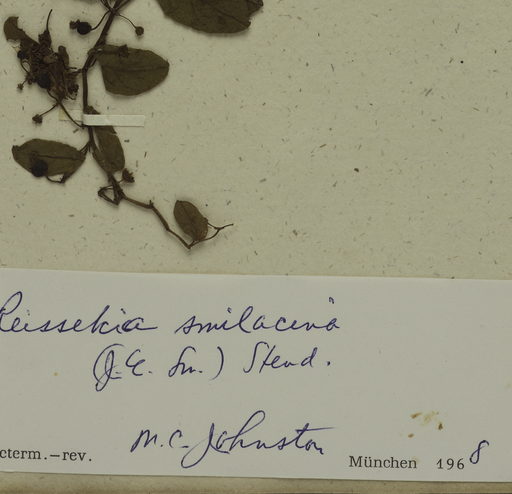 Reissekia smilacina
(J. E. Sm.) Steud.
M. C. Johnston
cterm.-rev. München 1968